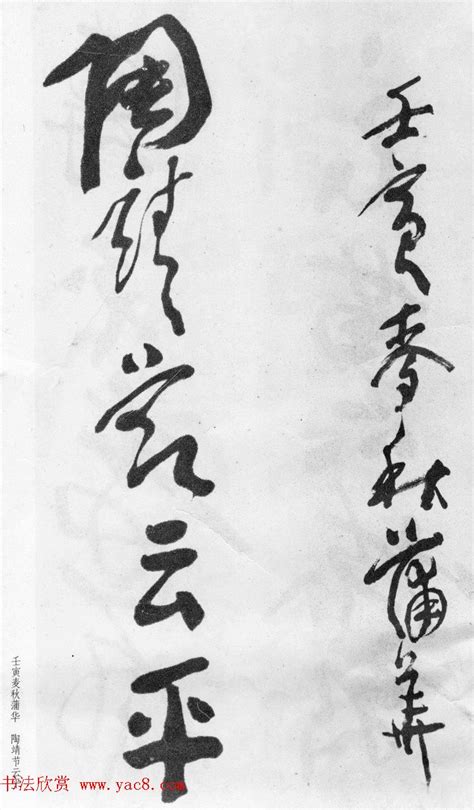 壬寅麦秋蒲華
陶靖节云平
壬寅麦秋蒲华 陶靖节云
书法欣赏 www.yac8.com